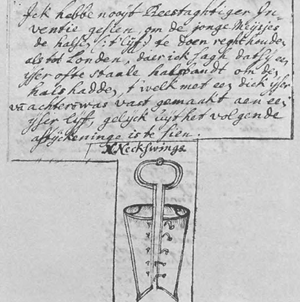 Ick hebbe noyt Beestaghtiger In-
ventie gesien, om de jonge Meijsjes
de halse, : t lijf, te doen reght houden
als tot Londen, daer ick sagh dat sy een
ijser ofte staale halsbandt om den
hals hadde, t welck met een dick ijser
van achters was vast gemaakt aen een
ijser lijf, gelijck uijt het volgende
afteyckeninge is te sien.
Neckswinge